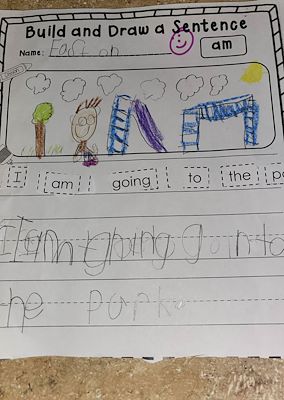 Build and Draw a Sentence
Name: Easton
am
I am going to the
I am going to
he park